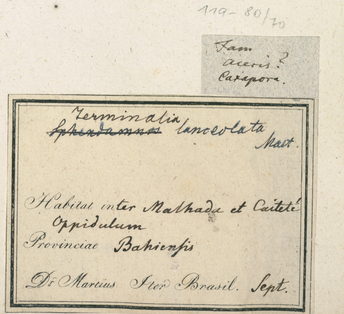 119-80/70
Fam
Aceris?
Carapora.
Terminalia
Sphendamnos lanceolata
Mart.
Habitat inter Malhada et Caiteté
Oppidulum
Provinciae Bahiensis
Dr Martius Iter Brasil. Sept.